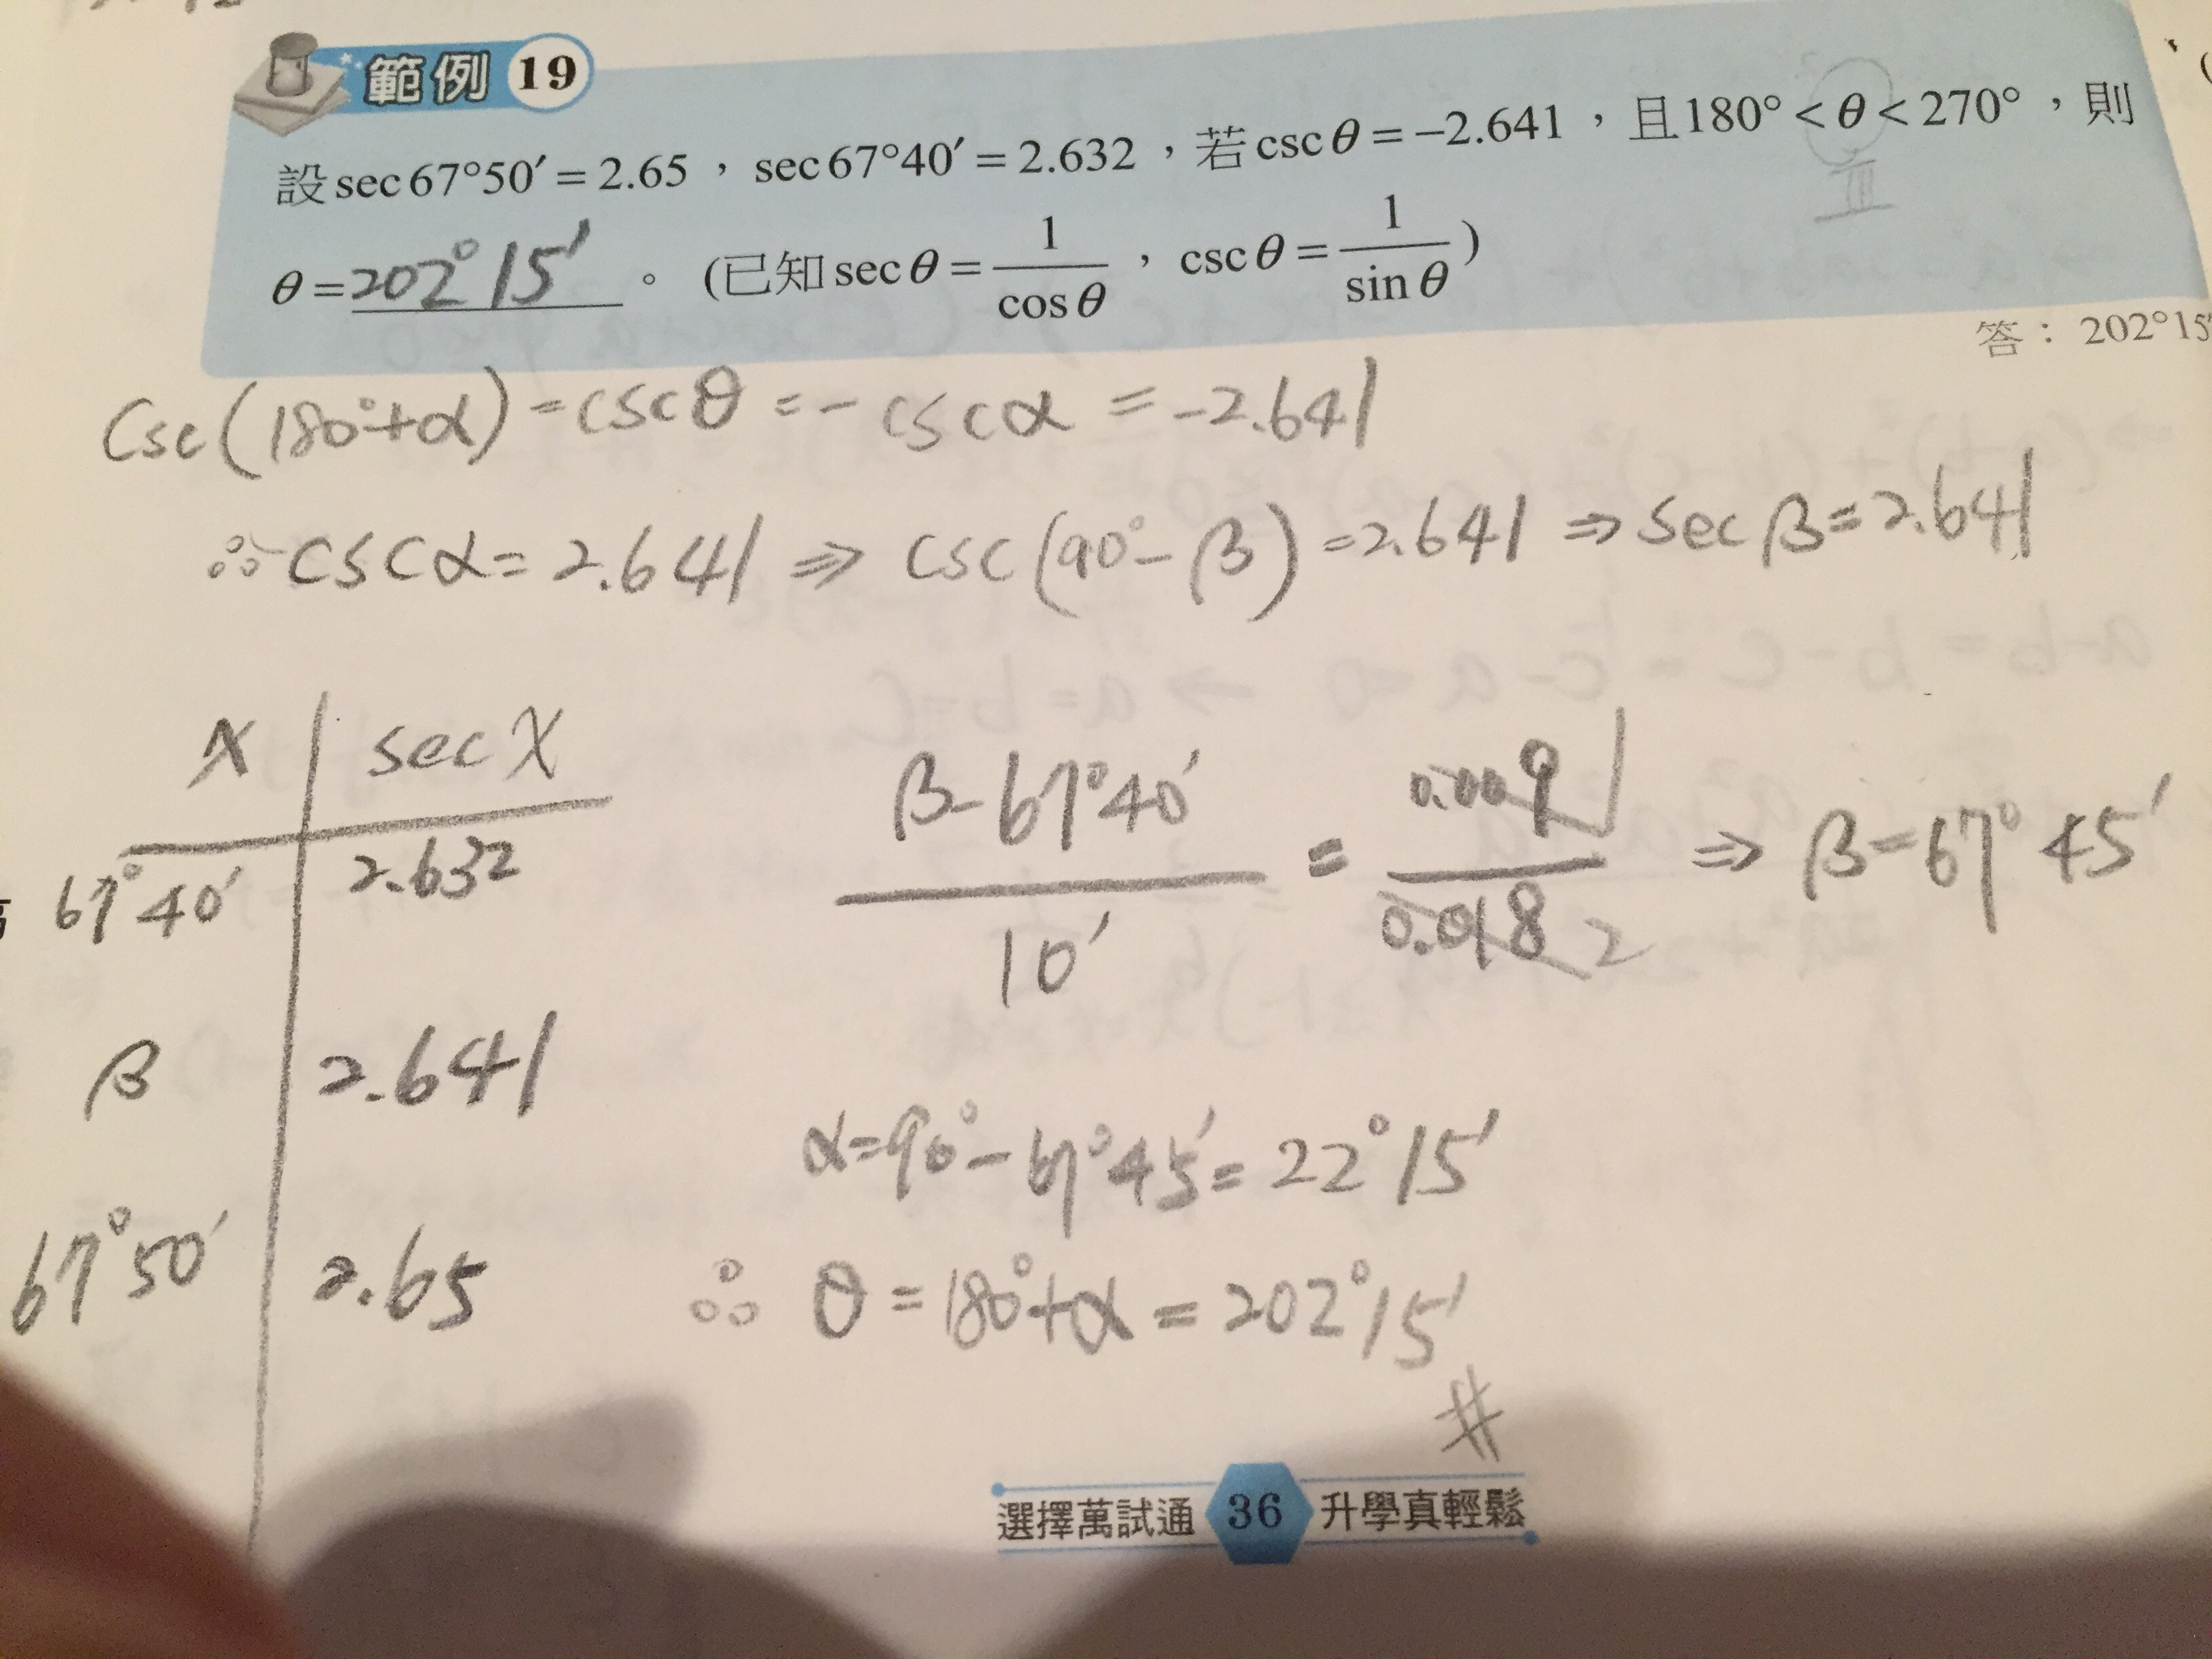 範例 19
設 sec 67°50′ = 2.65 , sec 67°40′ = 2.632 , 若 csc θ = −2.641 , 且 180° < θ < 270° , 則
III
θ = 202°15′ 。 (已知 sec θ = 1/cos θ , csc θ = 1/sin θ )
答 : 202°15′
Csc(180°+α) = cscθ = - cscα = -2.641
∴ cscα = 2.641 ⇒ csc(90°-β) = 2.641 ⇒ sec β = 2.641
x | sec x
67°40′ | 2.632
β | 2.641
67°50′ | 2.65
β-67°40′ / 10′ = 0.009 1 / 0.018 2 ⇒ β = 67°45′
α = 90° - 67°45′ = 22°15′
∴ θ = 180°+α = 202°15′
#
選擇萬試通 36 升學真輕鬆